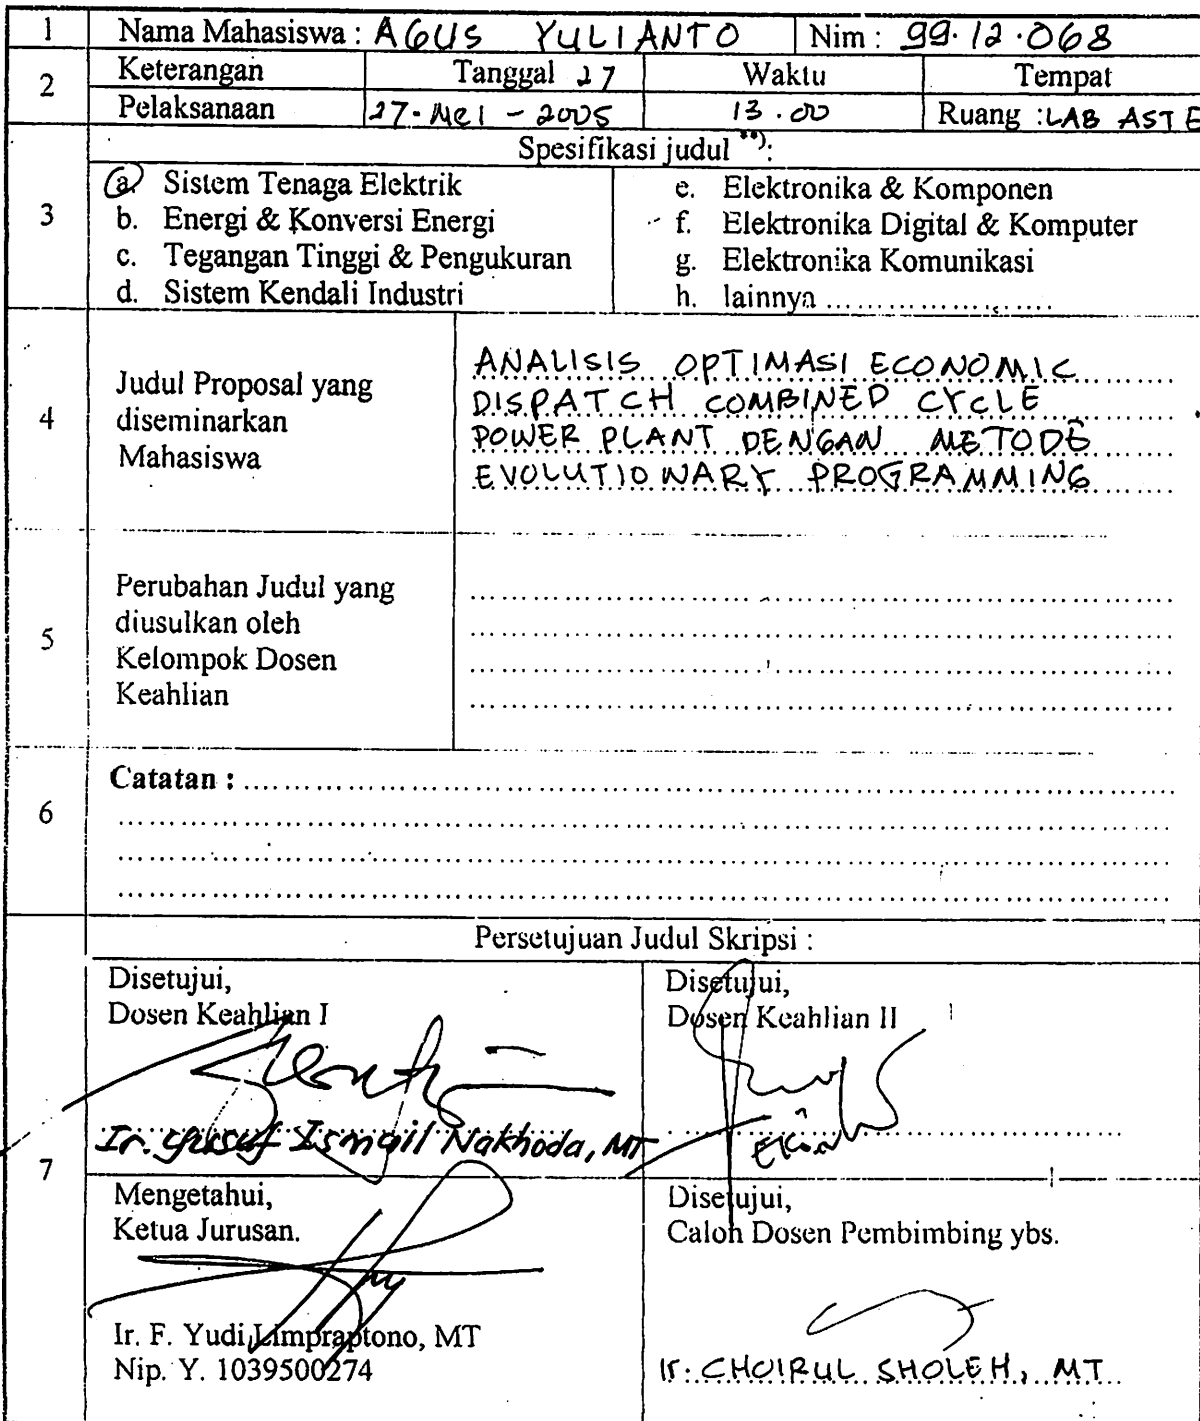 1 Nama Mahasiswa : AGUS YULIANTO Nim : 99.12.068
2 Keterangan Tanggal 27 Waktu Tempat
Pelaksanaan 27-Mei-2005 13.00 Ruang : LAB ASTE
Spesifikasi judul **):
3
a. Sistem Tenaga Elektrik
b. Energi & Konversi Energi
c. Tegangan Tinggi & Pengukuran
d. Sistem Kendali Industri
e. Elektronika & Komponen
f. Elektronika Digital & Komputer
g. Elektronika Komunikasi
h. lainnya ........................
4
Judul Proposal yang
diseminarkan
Mahasiswa
ANALISIS OPTIMASI ECONOMIC
DISPATCH COMBINED CYCLE
POWER PLANT DENGAN METODE
EVOLUTIONARY PROGRAMMING
5
Perubahan Judul yang
diusulkan oleh
Kelompok Dosen
Keahlian
6
Catatan :
7
Persetujuan Judul Skripsi :
Disetujui,
Dosen Keahlian I
Ir. Yusuf Ismail Nakhoda, MT
Disetujui,
Dosen Keahlian II
Mengetahui,
Ketua Jurusan.
Ir. F. Yudi Limpraptono, MT
Nip. Y. 1039500274
Disetujui,
Calon Dosen Pembimbing ybs.
Ir. CHOIRUL SHOLEH, MT